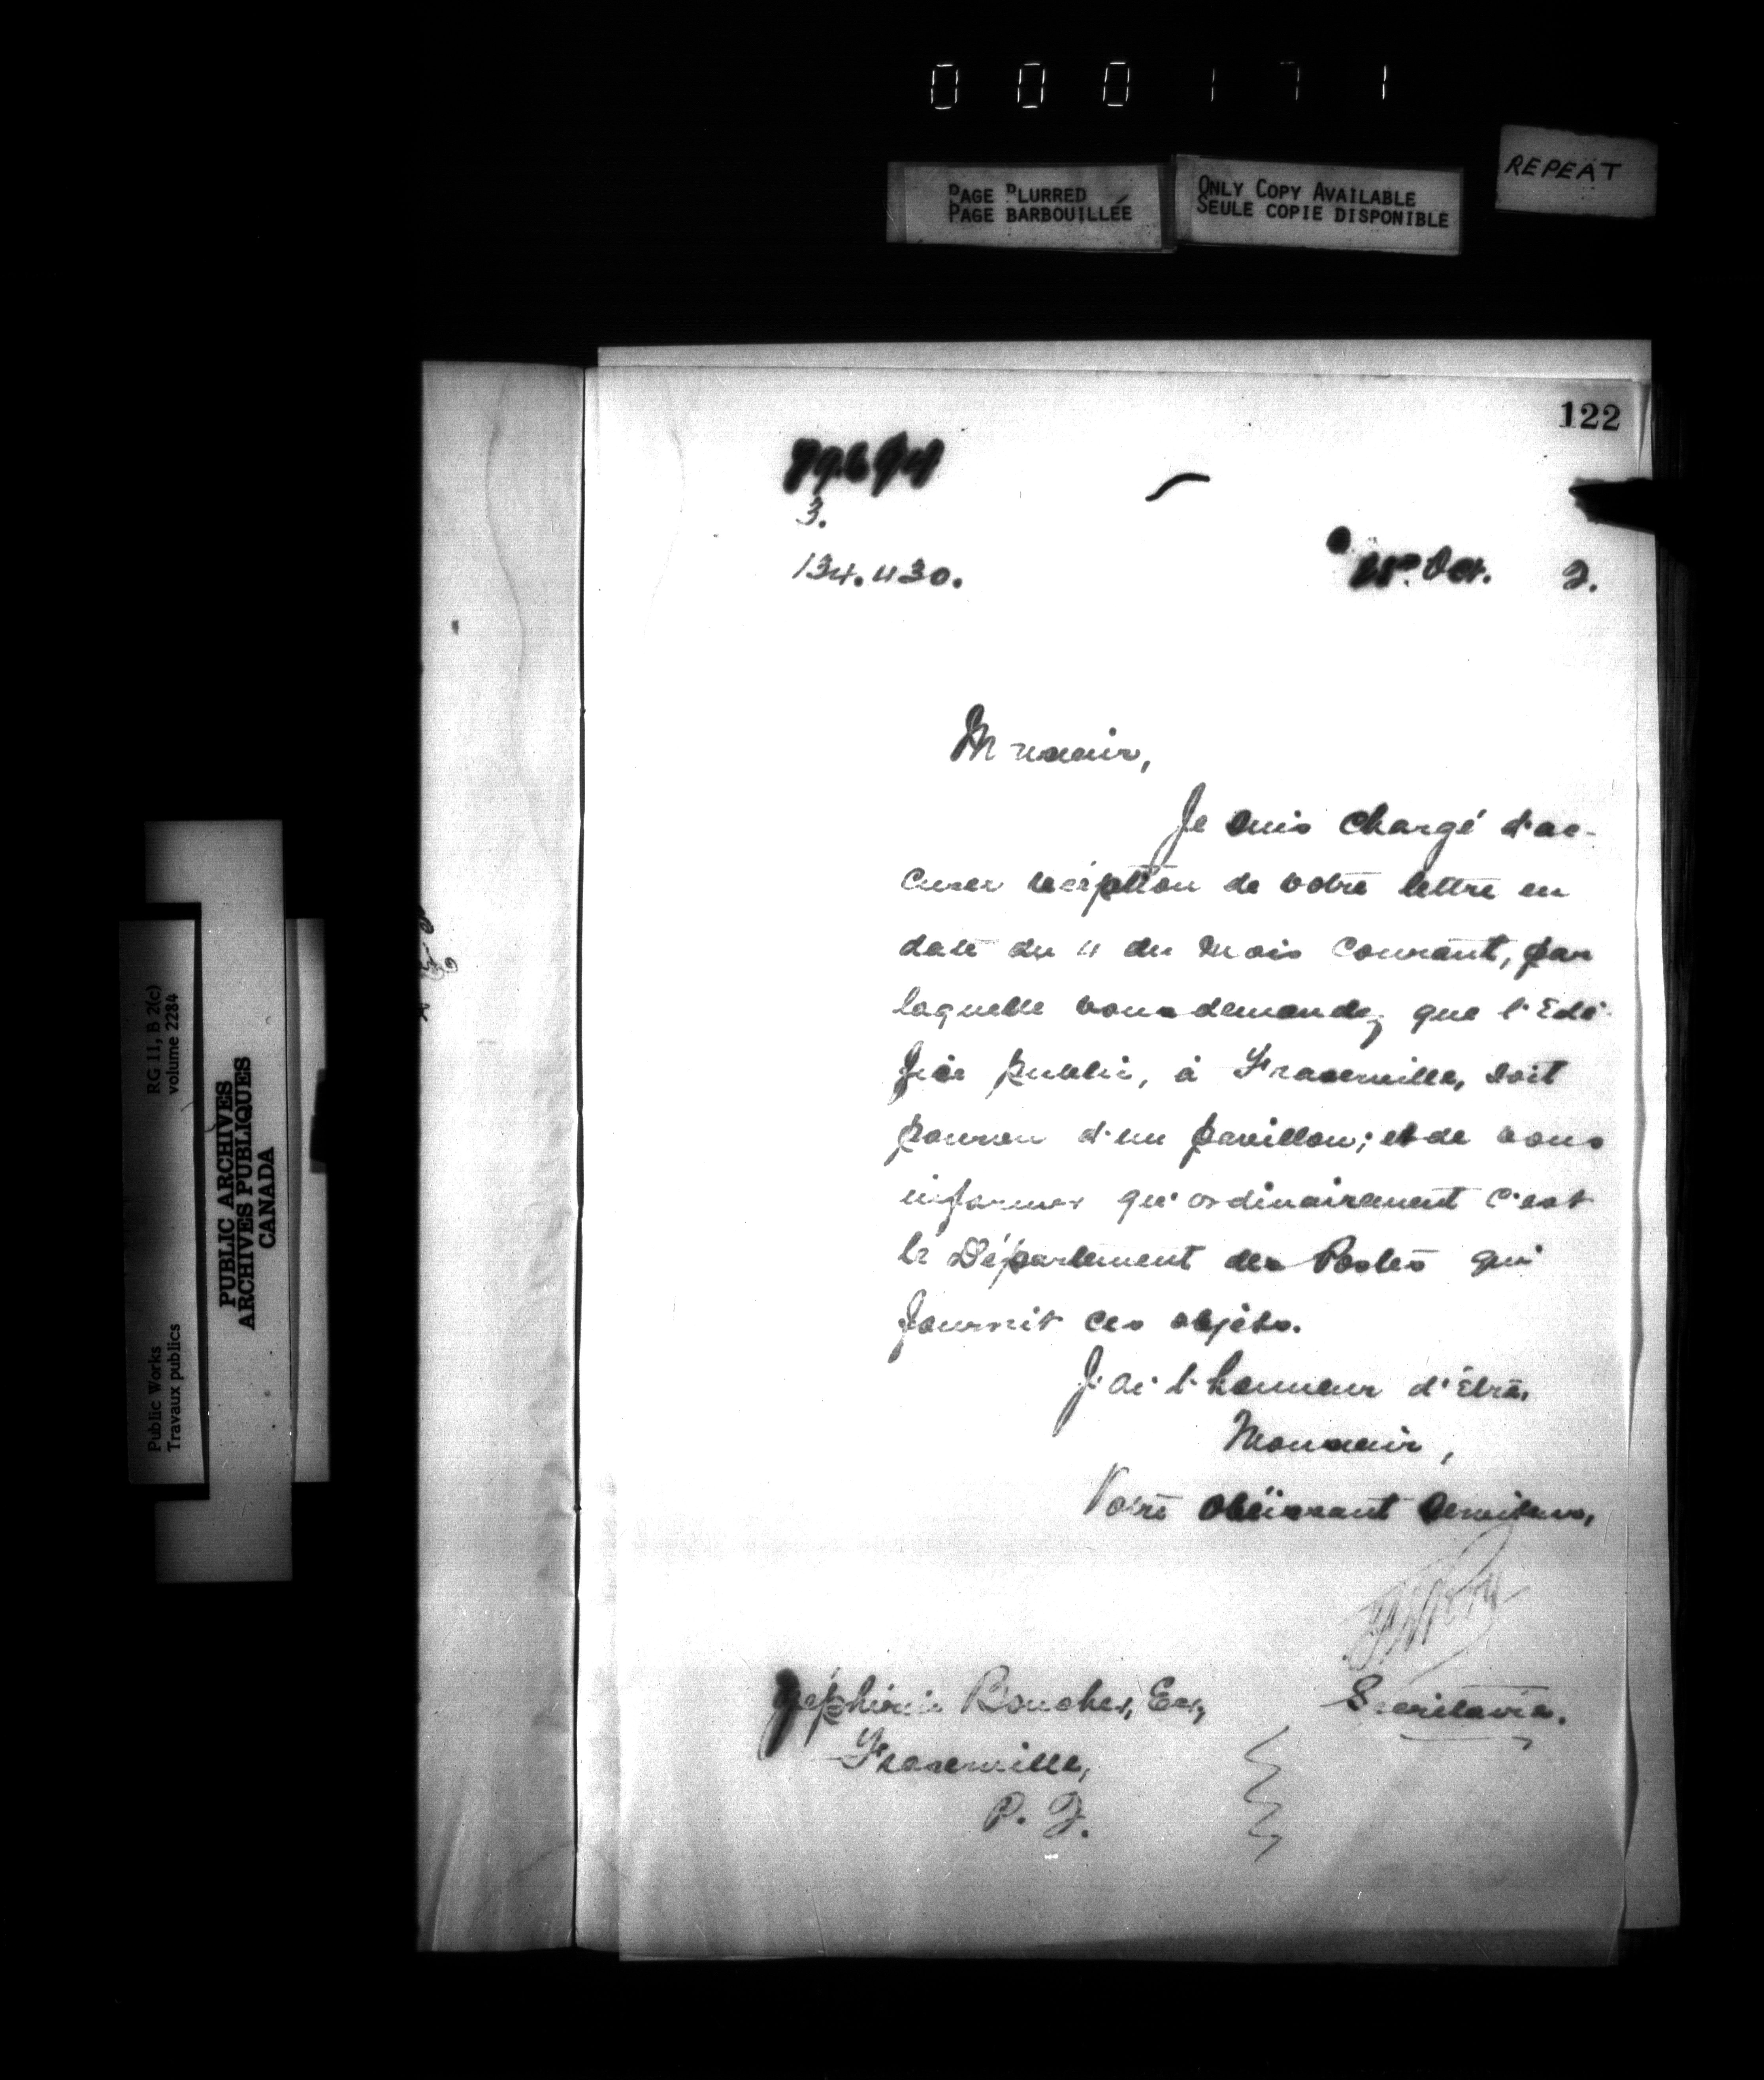 000171
REPEAT
PAGE BLURRED
PAGE BARBOUILLÉE
ONLY COPY AVAILABLE
SEULE COPIE DISPONIBLE
122
3.
134.430.
Oct. 2.
Monsieur,
Je suis chargé d'ac-
cuser réception de votre lettre en
date du 4 du mois courant, par
laquelle vous demandez que l'Edi-
fice public, à Fraserville, soit
pourvu d'un pavillon; et de vous
informer qu'ordinairement c'est
le Département des Postes qui
fournit ces objets.
J'ai l'honneur d'être,
Monsieur,
Votre obéissant serviteur,
Secrétaire.
Zéphirin Boucher, Esq,
Fraserville,
P. Q.
Public Works
Travaux publics
RG 11, B 2(c)
volume 2284
PUBLIC ARCHIVES
ARCHIVES PUBLIQUES
CANADA